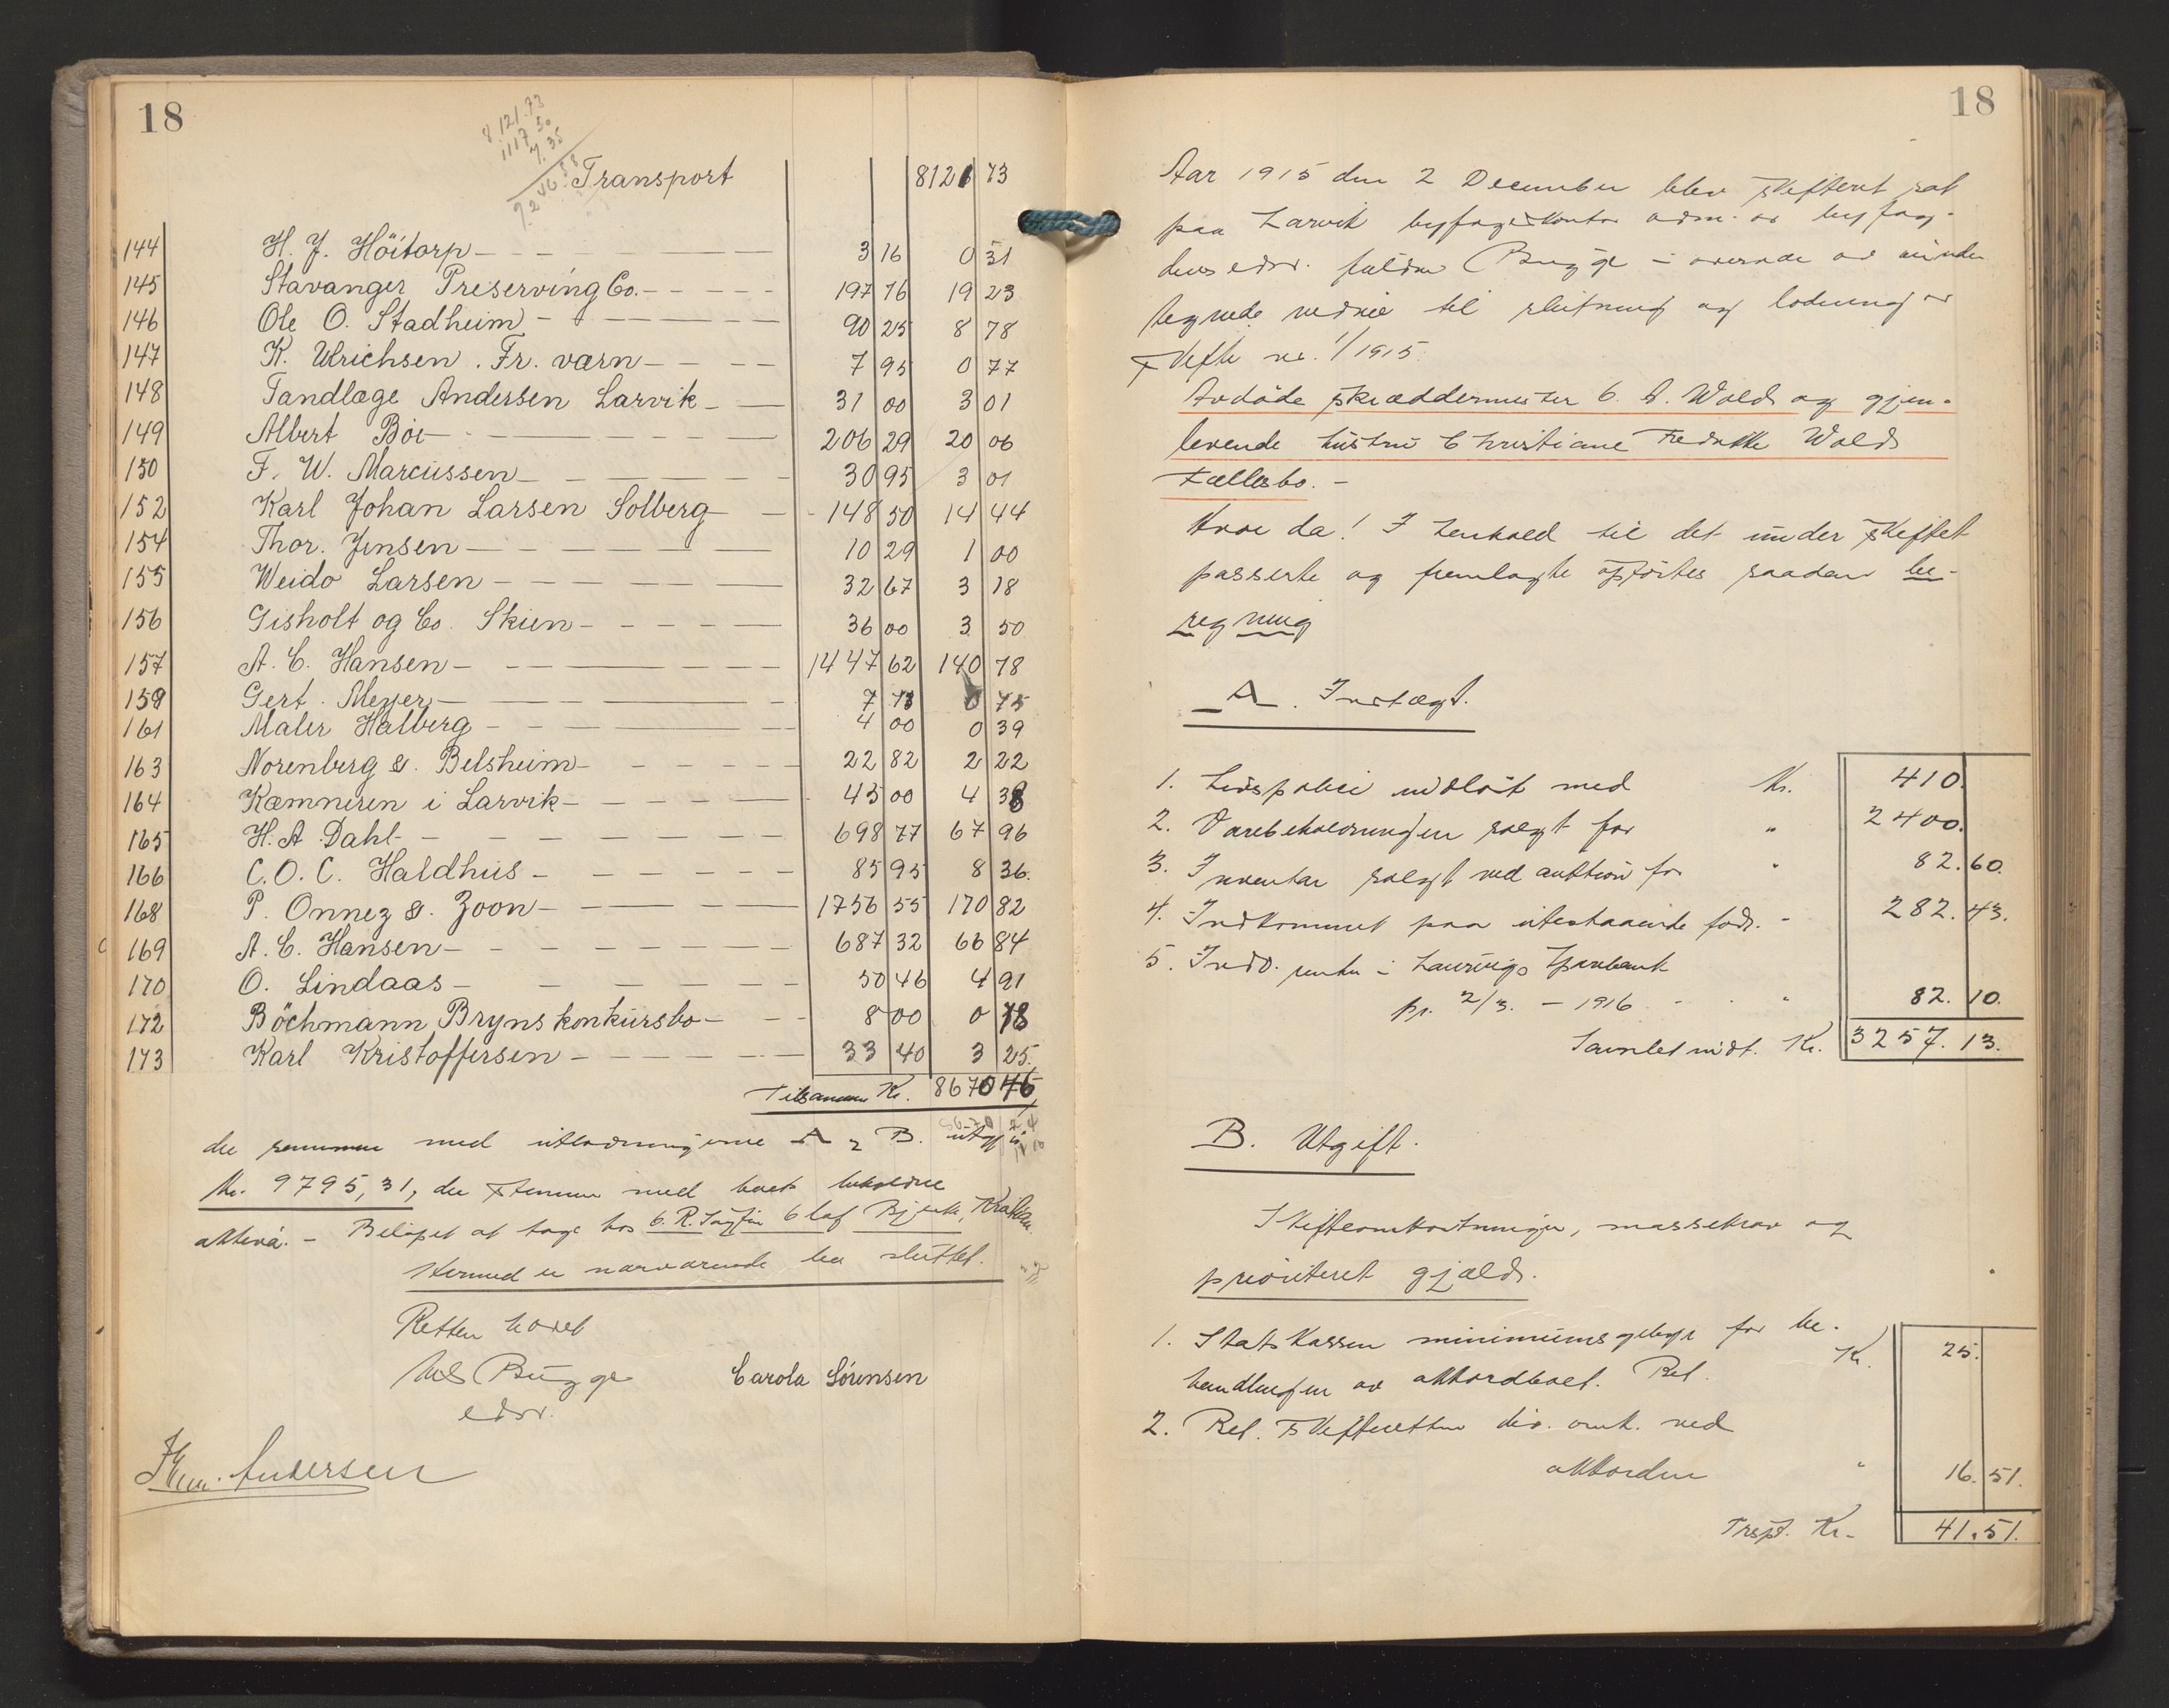 18
8 121.73
1117 50
7.35
9246.58
Transport 8121 73
144 H. J. Höitorp 3 16 0 31
145 Stavanger Preserving Co. 197 76 19 23
146 Ole O. Stadheim 90 25 8 78
147 K. Ulrichsen. Fr. værn 7 95 0 77
148 Tandlæge Andersen Larvik 31 00 3 01
149 Albert Böe 206 29 20 06
150 F. W. Marcussen 30 95 3 01
152 Karl Johan Larsen Solberg 148 50 14 44
154 Thor. Jensen 10 29 1 00
155 Weido Larsen 32 67 3 18
156 Gisholt og Co. Skien 36 00 3 50
157 A. C. Hansen 1447 62 140 78
159 Gert. Meyer 7 73 0 75
161 Maler Halberg 4 00 0 39
163 Norenberg &. Belsheim 22 82 2 22
164 Kæmneren i Larvik 45 00 4 38
165 H. A. Dahl 698 77 67 96
166 C. O. C. Haldhus 85 95 8 36.
168 P. Onnez &. Zoon 1756 55 170 82
169 A. C. Hansen 687 32 66 84
170 O. Lindaas 50 46 4 91
172 Böchmann Bryns konkursbo 8 00 0 78
173 Karl Kristoffersen 33 40 3 25.
Tilsammen Kr. 8670 46
der sammen med utlodningerne A & B. utgjör
Kr. 9795,31, der stemmer med boets beholdne
aktiva. – Belöpet at tage hos O. R. Sagfører Olaf Bjerke,
Hermed er nærværende bo sluttet.
Retten hævet
Bugge Carola Sörensen
edsv.
Andersen
18
Aar 1915 den 2 December blev skifteret sat
paa Larvik byfogedkontor adm. av byfog-
dens edsv. fuldm Bugge i overvær av under
tegnede vidne til slutning og lodning av
skifte nr. 1/1915.
Avdöde skræddermester C. A. Wold og gjen-
levende hustru Christiane Fredrikke Wolds
Fællesbo. –
Hvor da! I henhold til det under skiftet
passerte og fremlagte opförtes saadan be-
regning
A. Indtægt.
1. Livspolice indlöst med Kr. 410.
2. Varebeholdningen solgt for " 2400.
3. Inventar solgt ved auktion for " 82.60.
4. Indkommet paa utestaaende fodr. - 282.43.
5. Indv. renter i Laurvigs Sparebank
pr. 2/3. – 1916 - - " 82.10.
Samlet indt. Kr. 3257.13.
B. Utgift.
Skifteomkostninger, massekrav og
prioriteret gjæld.
1. Statskassen minimumsgebyr for be-
handlingen av akkordboet. Ref. Kr. 25.
2. Ref. Skifteretten div. omk. ved
akkorden " 16.51.
Trspt. Kr. 41.51.